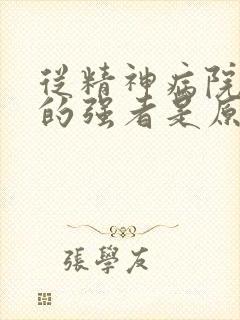 從精神病院
的強者是原
張學友